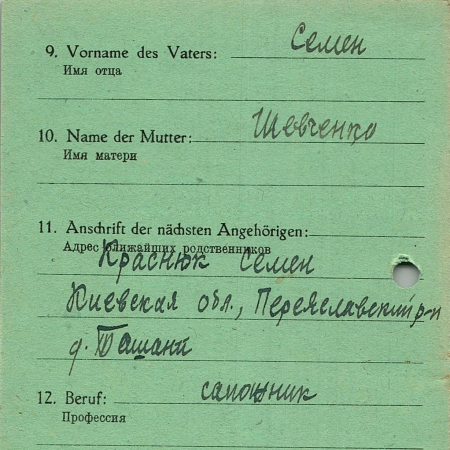 9. Vorname des Vaters: Семен
Имя отца
10. Name der Mutter: Шевченко
Имя матери
11. Anschrift der nächsten Angehörigen:
Адрес ближайших родственников
Краснюк Семен
Киевская обл., Переяславский р-н
д. Ташани
12. Beruf: сапожник
Профессия